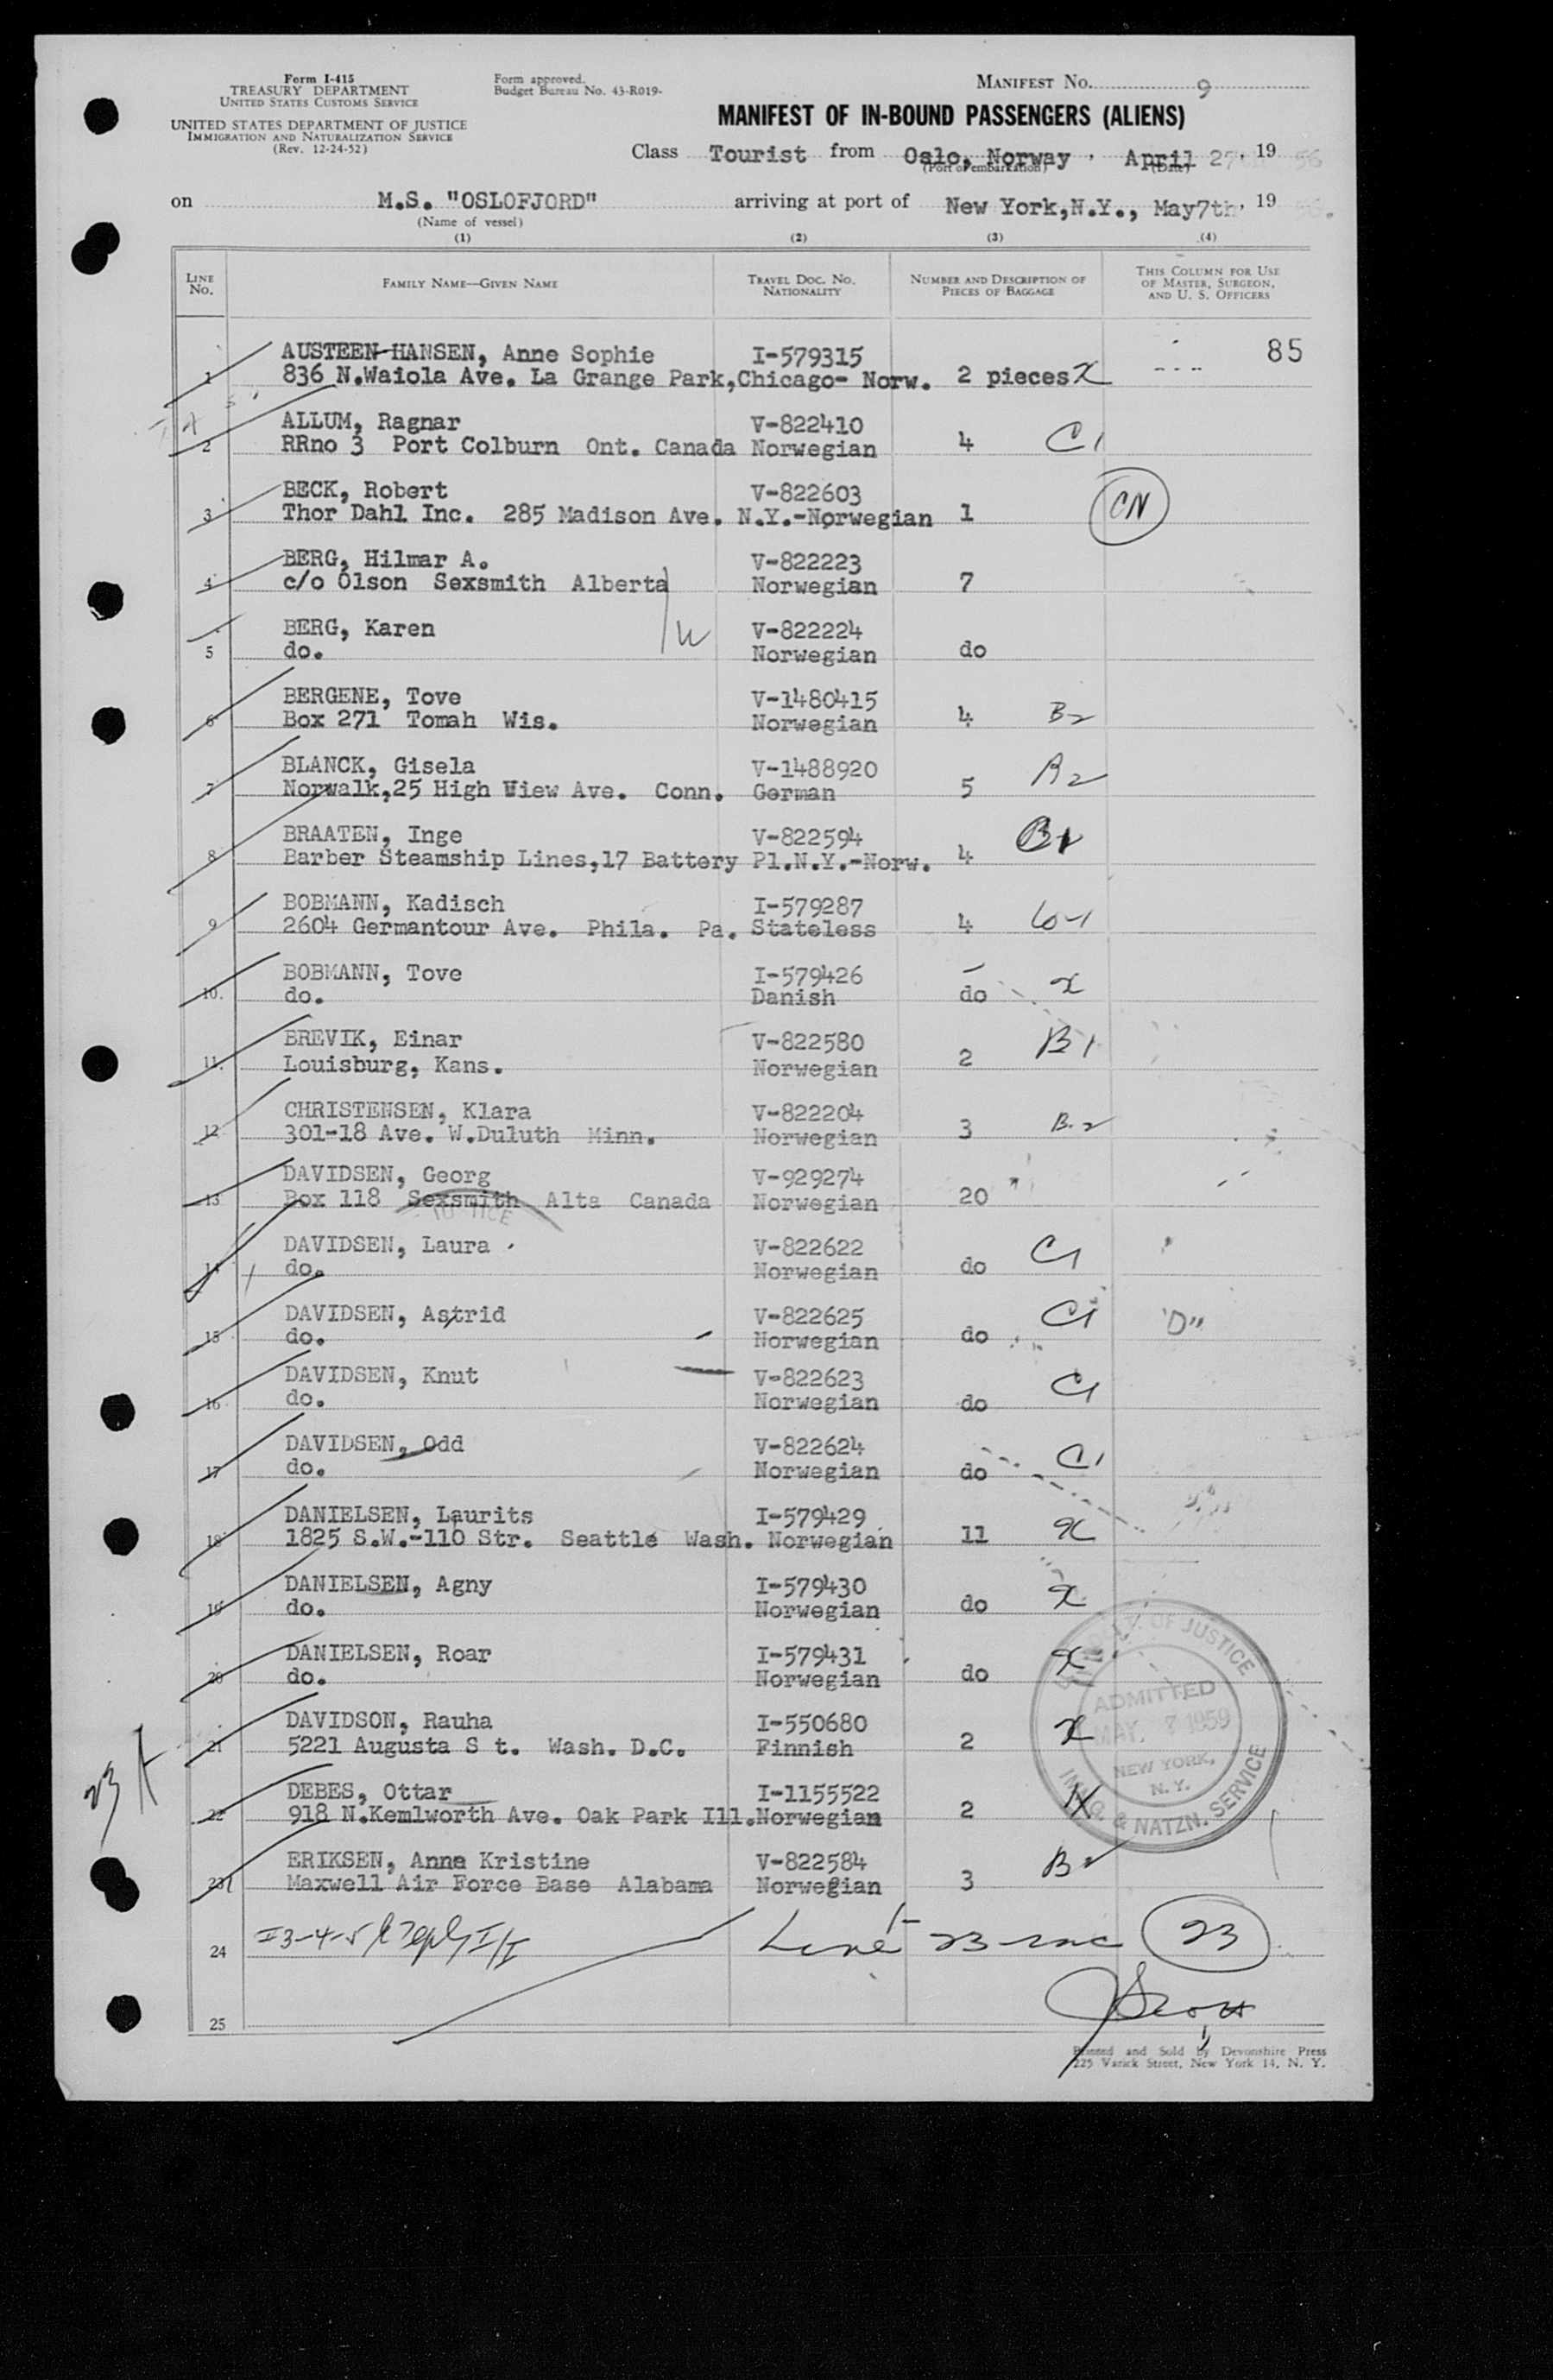 Form I-415
TREASURY DEPARTMENT
UNITED STATES CUSTOMS SERVICE
UNITED STATES DEPARTMENT OF JUSTICE
IMMIGRATION AND NATURALIZATION SERVICE
(Rev. 12-24-52)
Form approved.
Budget Bureau No. 43-R019-
MANIFEST No. 9
MANIFEST OF IN-BOUND PASSENGERS (ALIENS)
Class Tourist from Oslo, Norway, April 27th, 1956
(Port of embarkation) (Date)
on M.S. "OSLOFJORD" arriving at port of New York,N.Y., May7th, 1956.
(Name of vessel)
(1) (2) (3) (4)
LINE No. FAMILY NAME—GIVEN NAME TRAVEL DOC. NO. NATIONALITY NUMBER AND DESCRIPTION OF PIECES OF BAGGAGE THIS COLUMN FOR USE OF MASTER, SURGEON, AND U. S. OFFICERS
AUSTEEN-HANSEN, Anne Sophie I-579315 85
1 836 N.Waiola Ave. La Grange Park,Chicago- Norw. 2 pieces X
ALLUM, Ragnar V-822410
2 RRno 3 Port Colburn Ont. Canada Norwegian 4 C1
BECK, Robert V-822603
3 Thor Dahl Inc. 285 Madison Ave. N.Y.-Norwegian 1 CN
BERG, Hilmar A. V-822223
4 c/o Olson Sexsmith Alberta Norwegian 7
BERG, Karen V-822224
5 do. W Norwegian do
BERGENE, Tove V-1480415
6 Box 271 Tomah Wis. Norwegian 4 B2
BLANCK, Gisela V-1488920
7 Norwalk,25 High View Ave. Conn. German 5 B2
BRAATEN, Inge V-822594
8 Barber Steamship Lines,17 Battery Pl.N.Y.-Norw. 4 B1
BOBMANN, Kadisch I-579287
9 2604 Germantour Ave. Phila. Pa. Stateless 4
BOBMANN, Tove I-579426
10. do. Danish do X
BREVIK, Einar V-822580
11. Louisburg, Kans. Norwegian 2 B1
CHRISTENSEN, Klara V-822204
12 301-18 Ave. W.Duluth Minn. Norwegian 3 B-2
DAVIDSEN, Georg V-929274
13 Box 118 Sexsmith Alta Canada Norwegian 20
DAVIDSEN, Laura V-822622
14 do. Norwegian do C1
DAVIDSEN, Astrid V-822625
15 do. Norwegian do C1 "D"
DAVIDSEN, Knut V-822623
16 do. Norwegian do C1
DAVIDSEN, Odd V-822624
17 do. Norwegian do C1
DANIELSEN, Laurits I-579429
18 1825 S.W.-110 Str. Seattle Wash. Norwegian 11 X
DANIELSEN, Agny I-579430
19 do. Norwegian do X
DANIELSEN, Roar I-579431
20 do. Norwegian do X
DAVIDSON, Rauha I-550680
21 5221 Augusta S t. Wash. D.C. Finnish 2 X
DEBES, Ottar I-1155522
22 918 N.Kemlworth Ave. Oak Park Ill.Norwegian 2 X
ERIKSEN, Anna Kristine V-822584
23 Maxwell Air Force Base Alabama Norwegian 3 B2
OF JUSTICE
ADMITTED
MAY 7 1959
NEW YORK,
N. Y.
& NATZN. SERVICE
24 Line 1- 23 inc 23
25
Printed and Sold by Devonshire Press
225 Varick Street, New York 14, N. Y.